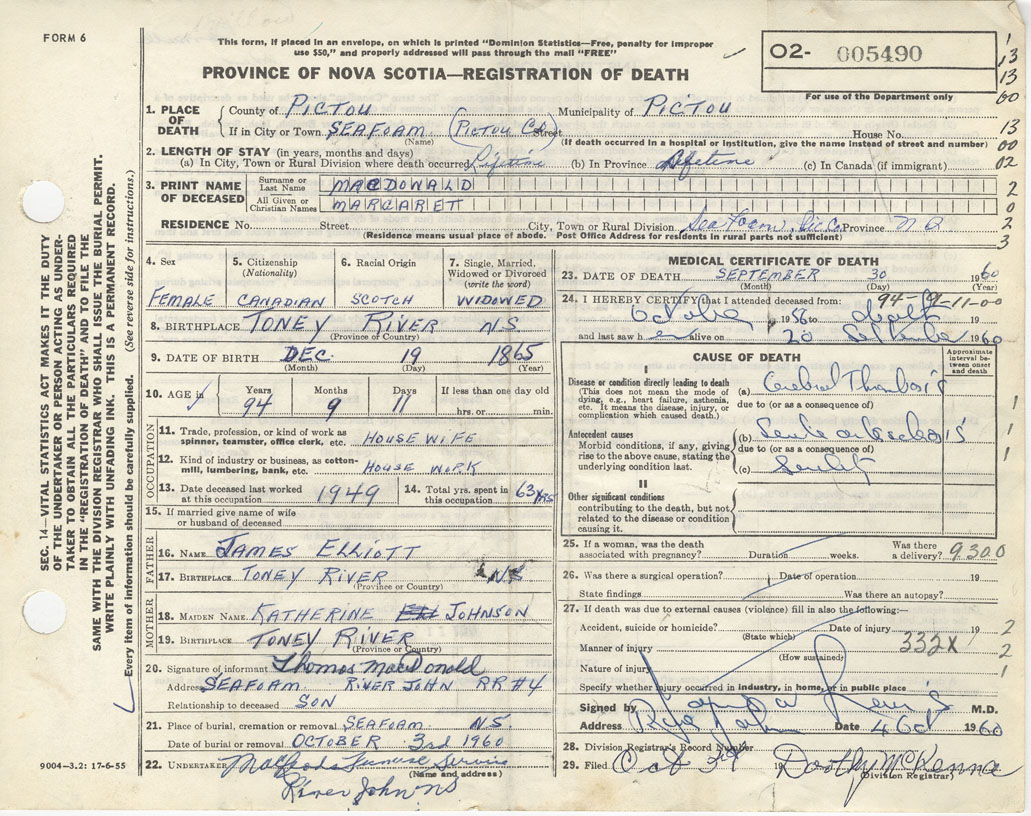 FORM 6
This form, if placed in an envelope, on which is printed "Dominion Statistics—Free, penalty for improper
use $50," and properly addressed will pass through the mail "FREE"
PROVINCE OF NOVA SCOTIA—REGISTRATION OF DEATH
02- 005490
For use of the Department only
1
13
13
00
13
00
02
2
0
2
3
1. PLACE OF DEATH
County of PICTOU Municipality of PICTOU
If in City or Town SEAFOAM (PICTOU CO) Street House No.
(Name) (If death occurred in a hospital or institution, give the name instead of street and number)
2. LENGTH OF STAY (in years, months and days)
(a) In City, Town or Rural Division where death occurred Lifetime (b) In Province Lifetime (c) In Canada (if immigrant)
3. PRINT NAME OF DECEASED
Surname or Last Name MACDONALD
All Given or Christian Names MARGARETT
RESIDENCE No. Street City, Town or Rural Division Seafoam, Pic Co Province N S
(Residence means usual place of abode. Post Office Address for residents in rural parts not sufficient)
SEC. 14—VITAL STATISTICS ACT MAKES IT THE DUTY
OF THE UNDERTAKER OR PERSON ACTING AS UNDER-
TAKER TO OBTAIN ALL THE PARTICULARS REQUIRED
IN THE "REGISTRATION OF DEATH" AND TO FILE THE
SAME WITH THE DIVISION REGISTRAR WHO SHALL ISSUE THE BURIAL PERMIT.
WRITE PLAINLY WITH UNFADING INK. THIS IS A PERMANENT RECORD.
Every item of information should be carefully supplied. (See reverse side for instructions.)
4. Sex FEMALE
5. Citizenship (Nationality) CANADIAN
6. Racial Origin SCOTCH
7. Single, Married, Widowed or Divorced (write the word) WIDOWED
8. BIRTHPLACE TONEY RIVER N.S.
(Province or Country)
9. DATE OF BIRTH DEC. 19 1865
(Month) (Day) (Year)
10. AGE in Years Months Days If less than one day old
94 9 11 hrs. or min.
OCCUPATION
11. Trade, profession or kind of work as spinner, teamster, office clerk, etc. HOUSE WIFE
12. Kind of industry or business, as cotton-mill, lumbering, bank, etc. HOUSE WORK
13. Date deceased last worked at this occupation 1949
14. Total yrs. spent in this occupation 63 YRS
15. If married give name of wife or husband of deceased
FATHER
16. NAME JAMES ELLIOTT
17. BIRTHPLACE TONEY RIVER N.S
(Province or Country)
MOTHER
18. MAIDEN NAME KATHERINE JOHNSON
19. BIRTHPLACE TONEY RIVER
(Province or Country)
20. Signature of informant Thomas MacDonald
Address SEAFOAM RIVER JOHN RR#4
Relationship to deceased SON
21. Place of burial, cremation or removal SEAFOAM N.S
Date of burial or removal OCTOBER 3rd 1960
22. UNDERTAKER Funeral Service
(Name and address)
River John NS
9004-3.2: 17-6-55
MEDICAL CERTIFICATE OF DEATH
23. DATE OF DEATH SEPTEMBER 30 1960
(Month) (Day) (Year)
24. I HEREBY CERTIFY that I attended deceased from: 94-9-11-00
October 1956 to death
and last saw h e alive on 20 September 1960
CAUSE OF DEATH
Approximate interval between onset and death
I
Disease or condition directly leading to death
(This does not mean the mode of dying, e.g., heart failure, asthenia, etc. It means the disease, injury, or complication which caused death.)
(a) Cerebral Thrombosis
due to (or as a consequence of)
Antecedent causes
Morbid conditions, if any, giving rise to the above cause, stating the underlying condition last.
(b)
due to (or as a consequence of)
(c)
1
1
1
II
Other significant conditions
contributing to the death, but not related to the disease or condition causing it.
25. If a woman, was the death associated with pregnancy? Duration weeks. Was there a delivery? 9300
26. Was there a surgical operation? Date of operation 19
State findings Was there an autopsy?
27. If death was due to external causes (violence) fill in also the following:—
Accident, suicide or homicide? Date of injury 19 2
(State which)
Manner of injury 332X 2
(How sustained)
Nature of injury 1
Specify whether injury occurred in industry, in home, or in public place
Signed by M.D.
Address River John Date 4 Oct 1960
28. Division Registrar's Record Number
29. Filed Oct 3rd 19 Dorothy McKenna
(Division Registrar)